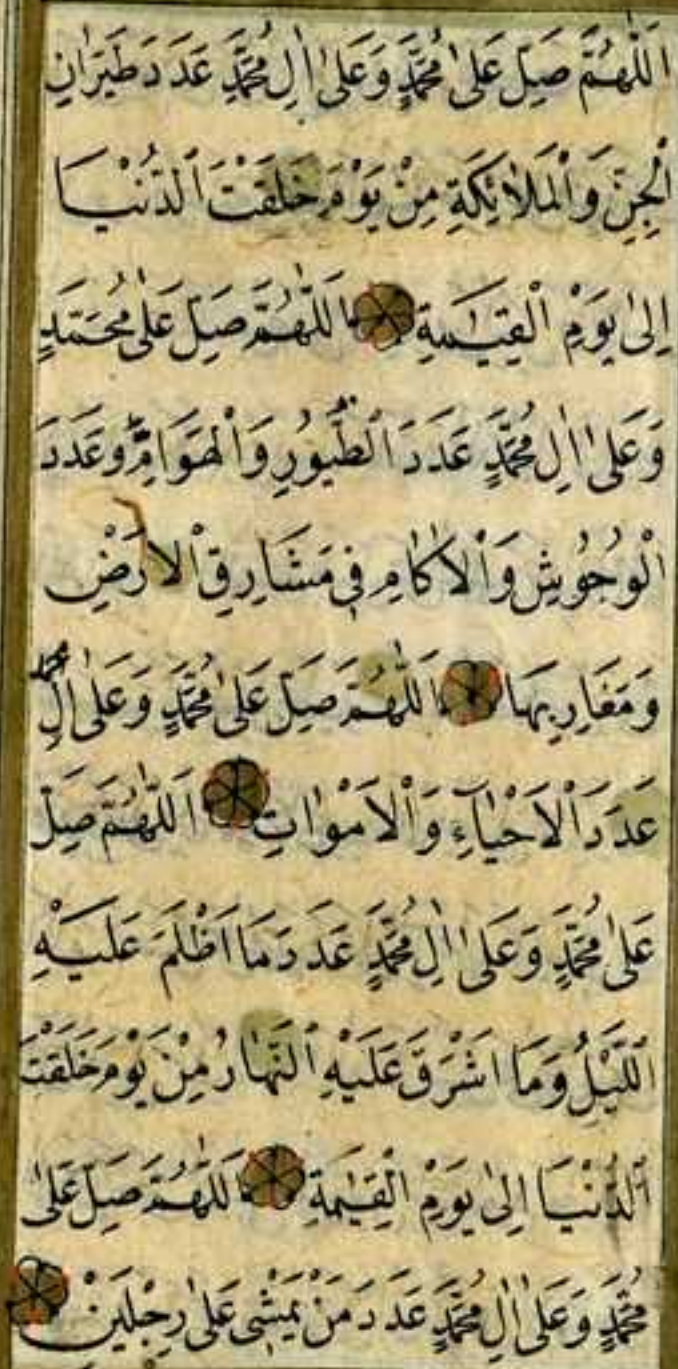 اَللّٰهُمَّ صَلِّ عَلٰى مُحَمَّدٍ وَعَلٰى اٰلِ مُحَمَّدٍ عَدَدَ طَيَرَانِ
الْجِنِّ وَالْمَلاٰئِكَةِ مِنْ يَوْمَ خَلَقْتَ الدُّنْيَا
اِلٰى يَوْمِ الْقِيٰمَةِ اَللّٰهُمَّ صَلِّ عَلٰى مُحَمَّدٍ
وَعَلٰى اٰلِ مُحَمَّدٍ عَدَدَ الطُّيُورِ وَالْهَوَامِّ وَعَدَدَ
الْوُحُوشِ وَالْاٰكَامِ فِى مَشَارِقِ الْاَرْضِ
وَمَغَارِبِهَا اَللّٰهُمَّ صَلِّ عَلٰى مُحَمَّدٍ وَعَلٰى اٰلِ محمد
عَدَدَ الْاَحْيَاءِ وَالْاَمْوَاتِ اَللّٰهُمَّ صَلِّ
عَلٰى مُحَمَّدٍ وَعَلٰى اٰلِ مُحَمَّدٍ عَدَدَ مَا اَظْلَمَ عَلَيْهِ
اللَّيْلُ وَمَا اَشْرَقَ عَلَيْهِ النَّهَارُ مِنْ يَوْمَ خَلَقْتَ
الدُّنْيَا اِلٰى يَوْمِ الْقِيٰمَةِ اَللّٰهُمَّ صَلِّ عَلٰى
مُحَمَّدٍ وَعَلٰى اٰلِ مُحَمَّدٍ عَدَدَ مَنْ يَمْشِى عَلٰى رِجْلَيْنِ